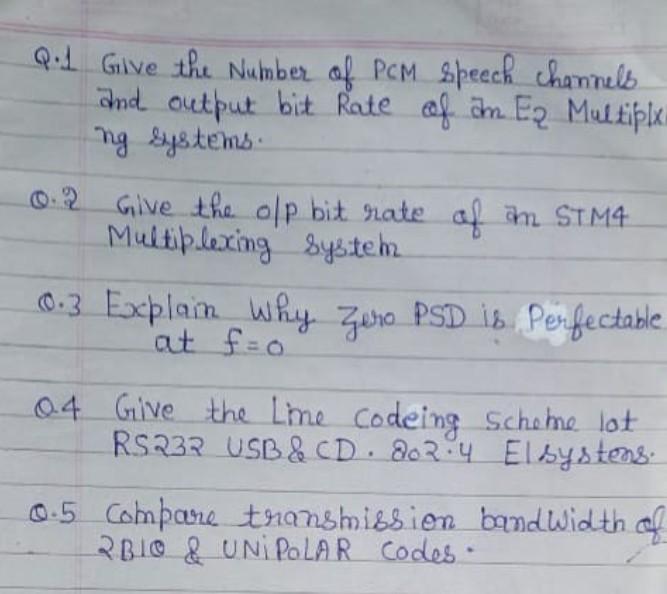 Q.1 Give the Number of PCM Speech channels
and output bit Rate of an E2 Multiplx
ng systems.
Q.2 Give the o/p bit rate of an STM4
Multiplexing System
Q.3 Explain Why Zero PSD is Perfectable
at f=0
Q.4 Give the Line Codeing Scheme lot
RS232 USB & CD. 802.4 E1 systens.
Q.5 Compare transmission bandwidth of
2B1Q & UNiPOLAR Codes.